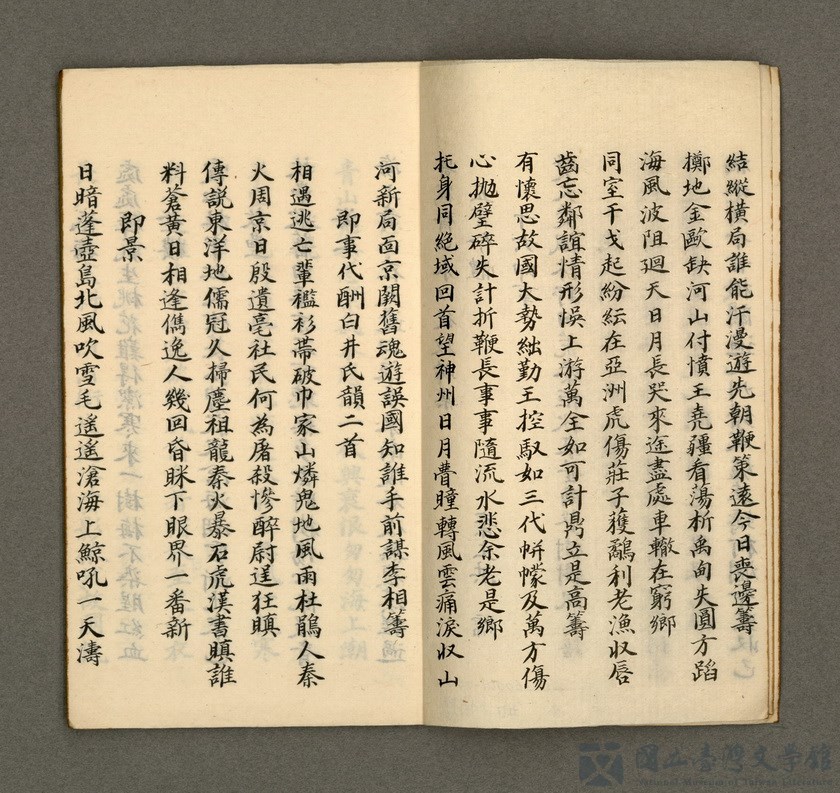 結縱橫局誰能汗漫遊先朝鞭策遠今日喪邊籌
擲地金歐缺河山付憤王堯疆看蕩析禹甸失圓方蹈
海風波阻迴天日月長哭來途盡處車轍在窮鄉
同室干戈起紛紜在亞洲虎傷莊子獲鷸利老漁収唇
齒忘鄰誼情形悞上游萬全如可計鼎立是高籌
有懷思故國大勢絀勤王控馭如三代帡幪及萬方傷
心拋璧碎失計折鞭長事事隨流水悲余老是鄉
托身同絕域回首望神州日月瞢瞳轉風雲痛淚収山
河新局面京闕舊魂遊誤國知誰手前謀李相籌
即事代酬臼井氏韻二首
相遇逃亡輩襤衫帶破巾家山燐鬼地風雨杜鵑人秦
火周京日殷遺亳社民何為屠殺慘醉尉逞狂瞋
傳説東洋地儒冠久掃塵祖龍秦火暴石虎漢書瞋誰
料蒼黃日相逢儁逸人幾回昏眯下眼界一番新
即景
日暗蓬壺島北風吹雪毛遙遙滄海上鯨吼一天濤
國立臺灣文學館
National Museum of Taiwan Literature